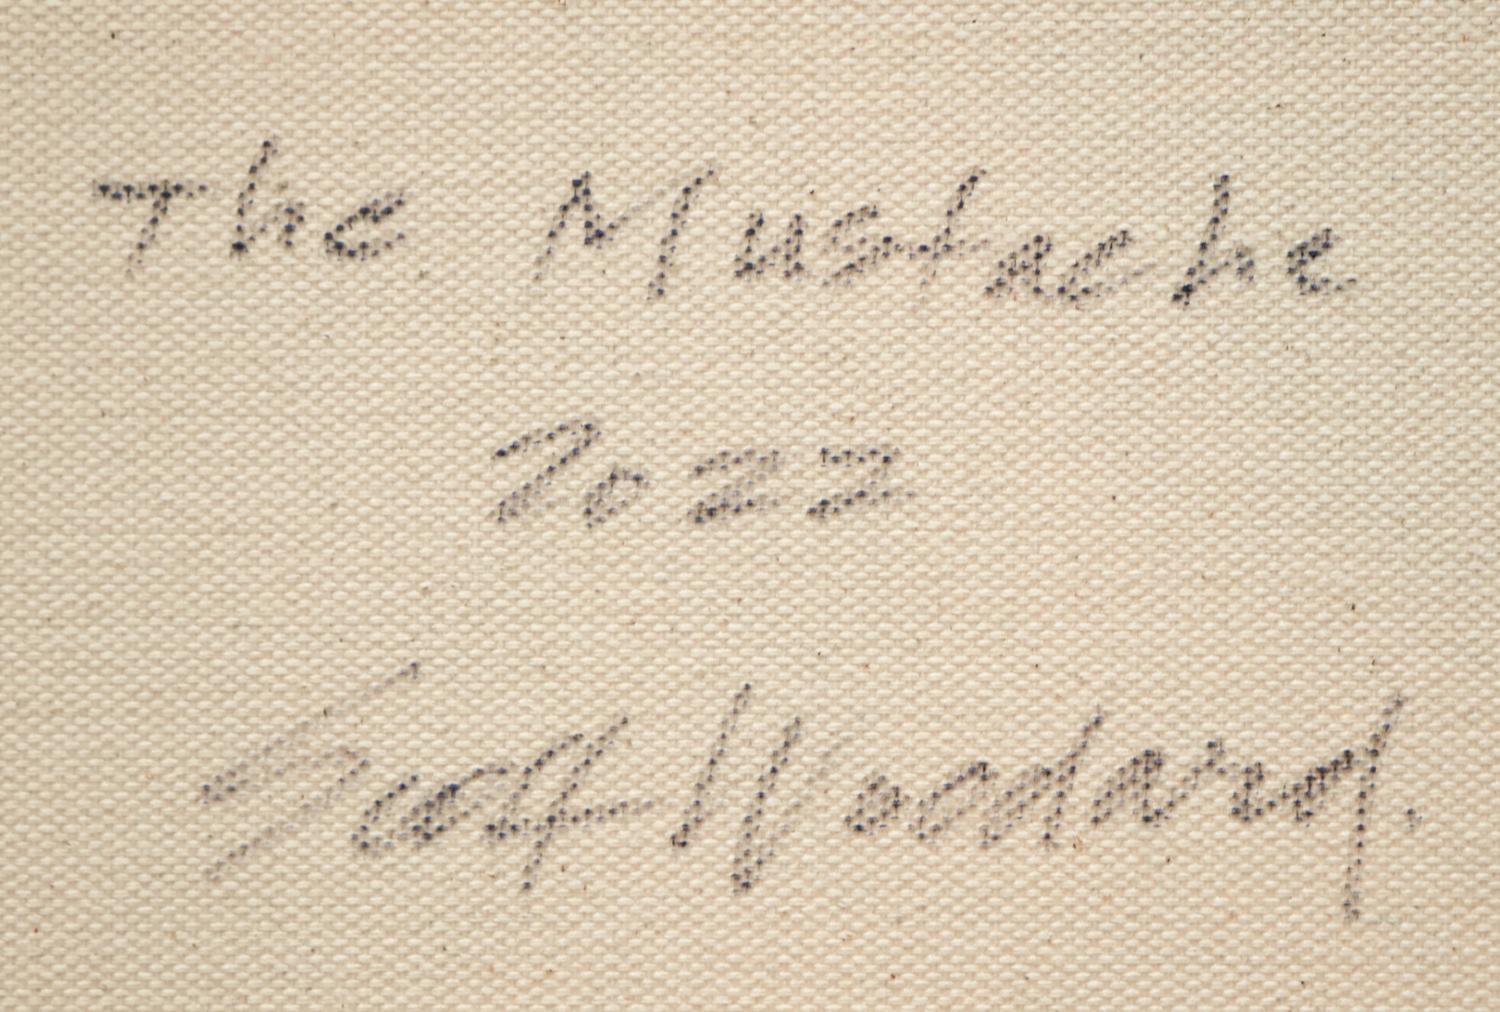 The Mustache
2022
Scott Woodard.